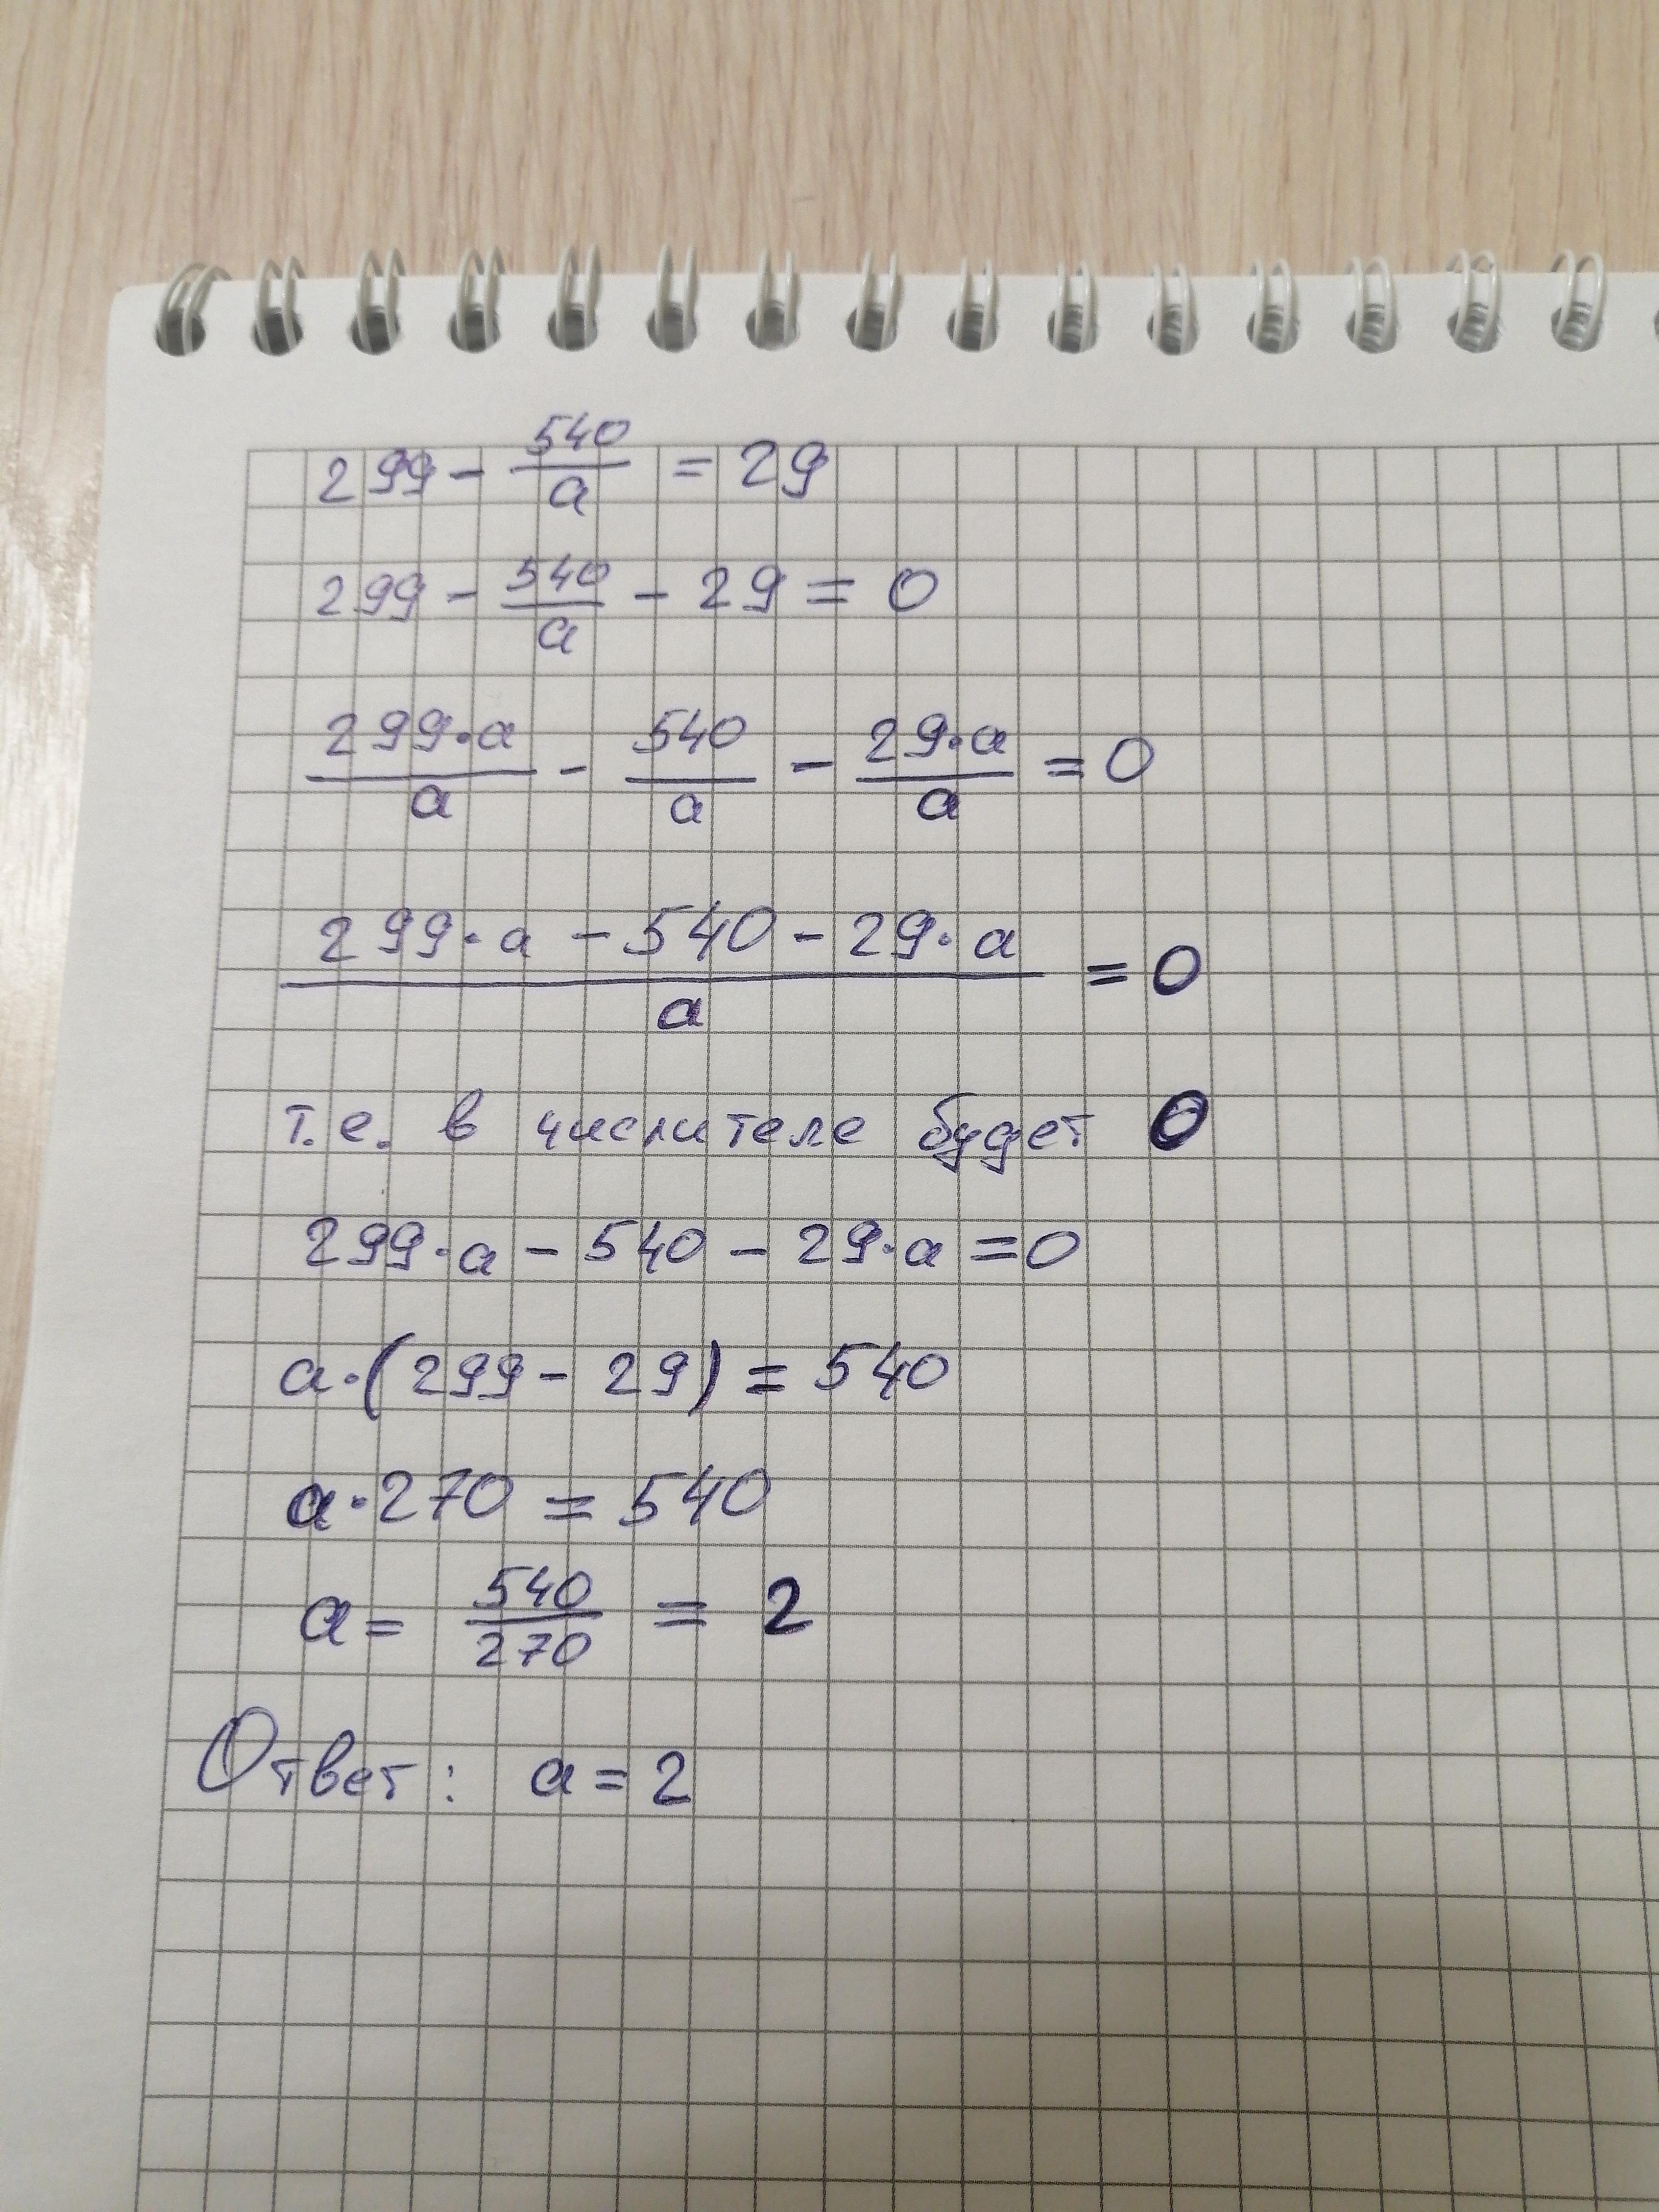 299 - 540/a = 29
299 - 540/a - 29 = 0
299·a/a - 540/a - 29·a/a = 0
299·a - 540 - 29·a / a = 0
т.е. в числителе будет 0
299·a - 540 - 29·a = 0
a·(299 - 29) = 540
a·270 = 540
a = 540/270 = 2
Ответ: a = 2